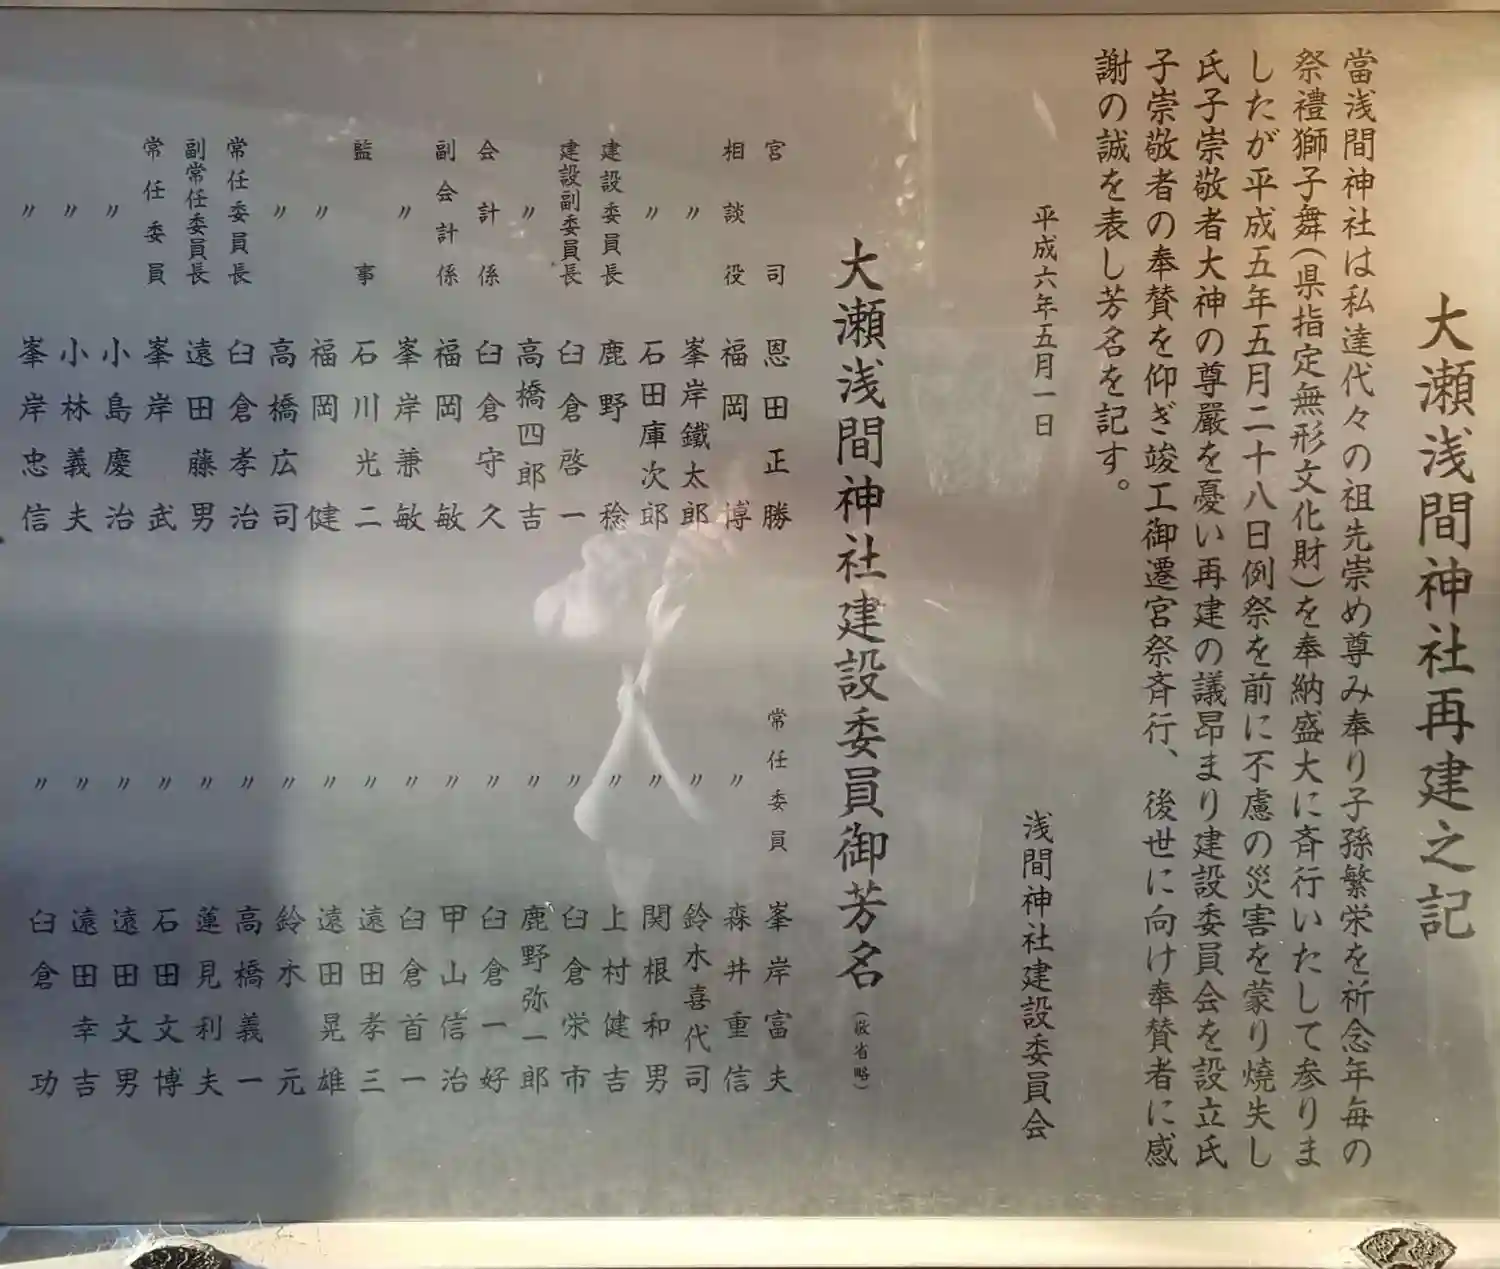 大瀬浅間神社再建之記
當浅間神社は私達代々の祖先崇め尊み奉り子孫繁栄を祈念年毎の
祭禮獅子舞(県指定無形文化財)を奉納盛大に斉行いたして参りま
したが平成五年五月二十八日例祭を前に不慮の災害を蒙り燒失し
氏子崇敬者大神の尊嚴を憂い再建の議昂まり建設委員会を設立氏
子崇敬者の奉賛を仰ぎ竣工御遷宮祭斉行、後世に向け奉賛者に感
謝の誠を表し芳名を記す。
平成六年五月一日
浅間神社建設委員会
大瀬浅間神社建設委員御芳名(敬省略)
宮司 恩田正勝
相談役 福岡博
〃 峯岸鐵太郎
〃 石田庫次郎
建設委員長 鹿野稔
建設副委員長 臼倉啓一
〃 高橋四郎吉
会計係 臼倉守久
副会計係 福岡敏
〃 峯岸兼敏
監事 石川光二
〃 福岡健
〃 高橋広司
常任委員長 臼倉孝治
副常任委員長 遠田藤男
常任委員 峯岸武
〃 小島慶治
〃 小林義夫
〃 峯岸忠信
常任委員 峯岸富夫
〃 森井重信
〃 鈴木喜代司
〃 関根和男
〃 上村健吉
〃 臼倉栄市
〃 鹿野弥一郎
〃 臼倉一好
〃 甲山信治
〃 臼倉首一
〃 遠田孝三
〃 遠田晃雄
〃 鈴木元
〃 高橋義一
〃 蓮見利夫
〃 石田文博
〃 遠田文男
〃 遠田幸吉
〃 臼倉功